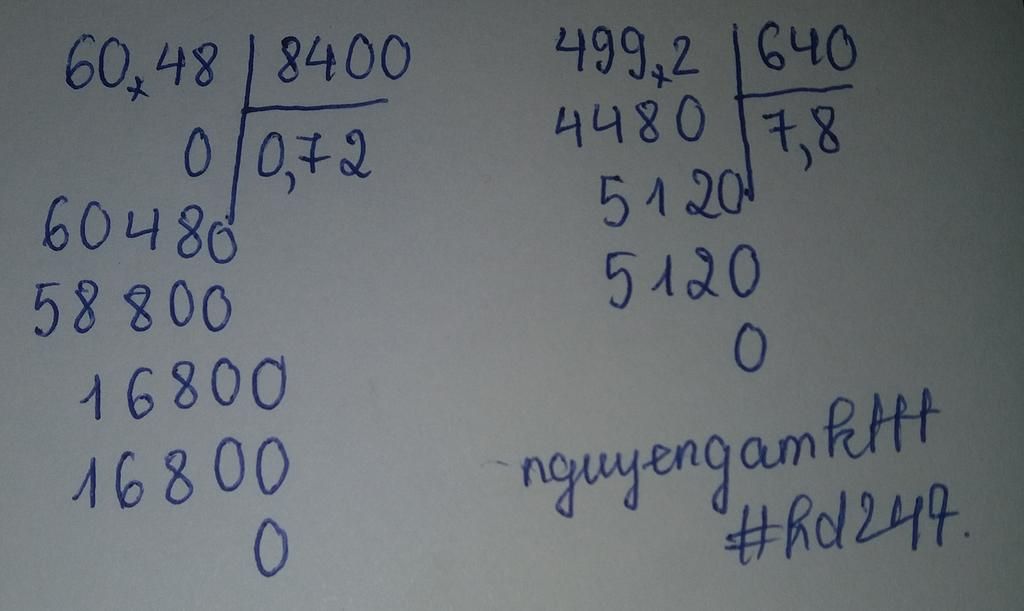 60,48 8400
0 0,72
60480
58800
16800
16800
0
499,2 640
4480 7,8
5120
5120
0
nguyengamkttt
#hd247.